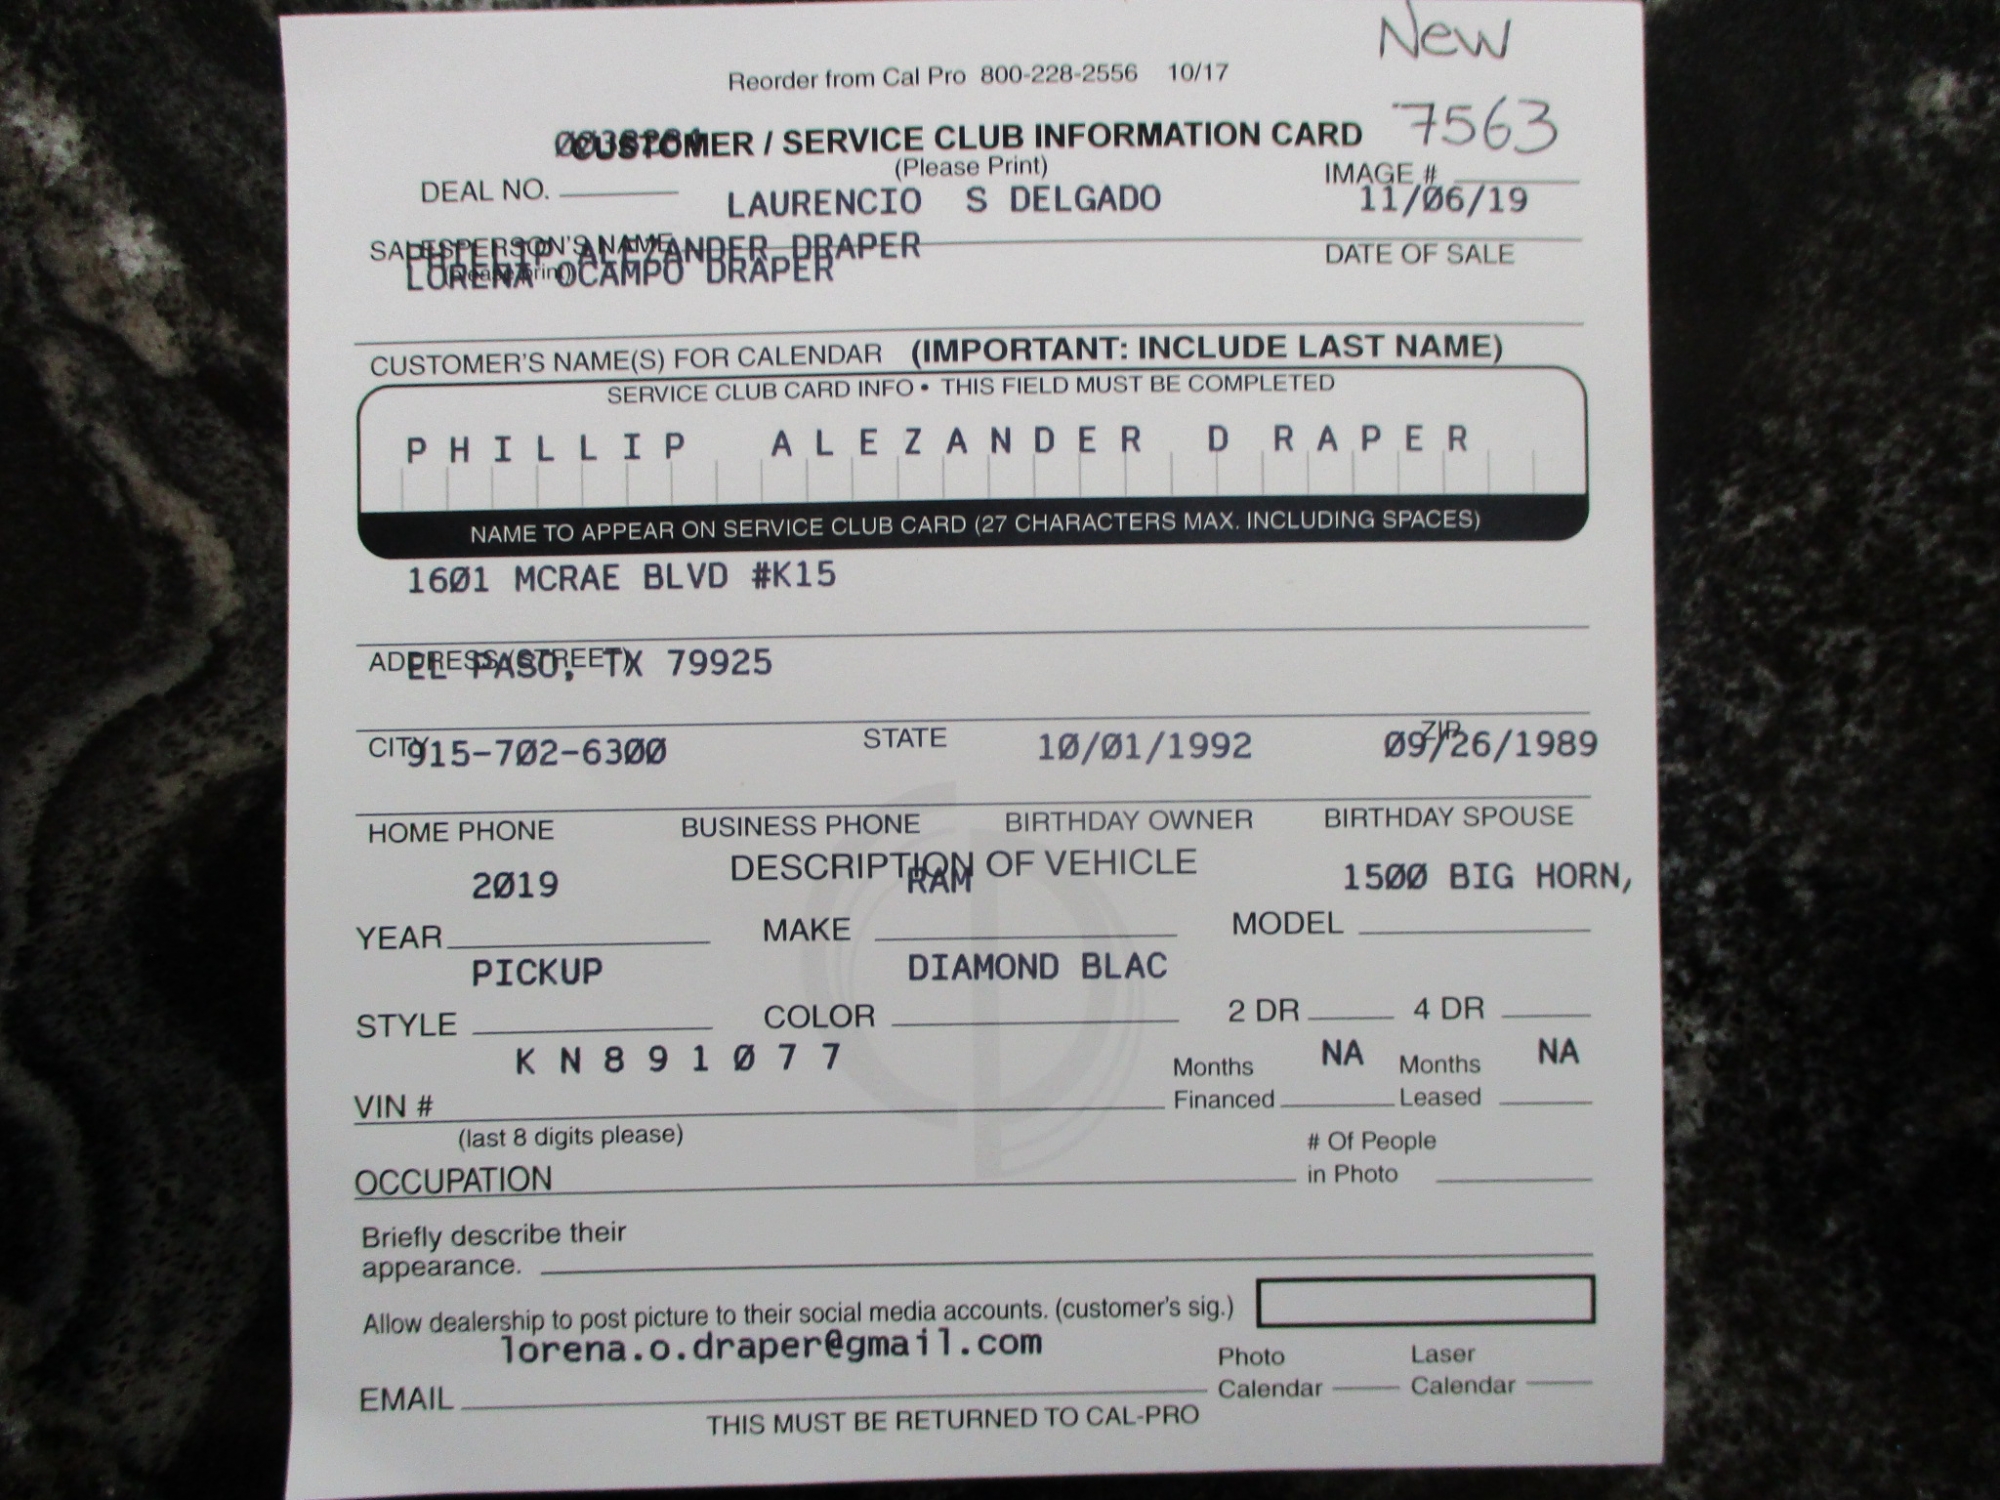 New
Reorder from Cal Pro 800-228-2556 10/17
CUSTOMER / SERVICE CLUB INFORMATION CARD 7563
(Please Print)
DEAL NO. IMAGE #
LAURENCIO S DELGADO 11/06/19
SALESPERSON'S NAME DATE OF SALE
PHILLIP ALEZANDER DRAPER
LORENA OCAMPO DRAPER
CUSTOMER'S NAME(S) FOR CALENDAR (IMPORTANT: INCLUDE LAST NAME)
SERVICE CLUB CARD INFO • THIS FIELD MUST BE COMPLETED
PHILLIP ALEZANDER DRAPER
NAME TO APPEAR ON SERVICE CLUB CARD (27 CHARACTERS MAX. INCLUDING SPACES)
1601 MCRAE BLVD #K15
ADDRESS (STREET)
EL PASO, TX 79925
CITY STATE ZIP
915-702-6300 10/01/1992 09/26/1989
HOME PHONE BUSINESS PHONE BIRTHDAY OWNER BIRTHDAY SPOUSE
DESCRIPTION OF VEHICLE
2019 RAM 1500 BIG HORN,
YEAR MAKE MODEL
PICKUP DIAMOND BLAC
STYLE COLOR 2 DR 4 DR
KN891077 Months NA Months NA
VIN # Financed Leased
(last 8 digits please) # Of People
OCCUPATION in Photo
Briefly describe their
appearance.
Allow dealership to post picture to their social media accounts. (customer's sig.)
lorena.o.draper@gmail.com Photo Laser
EMAIL Calendar Calendar
THIS MUST BE RETURNED TO CAL-PRO